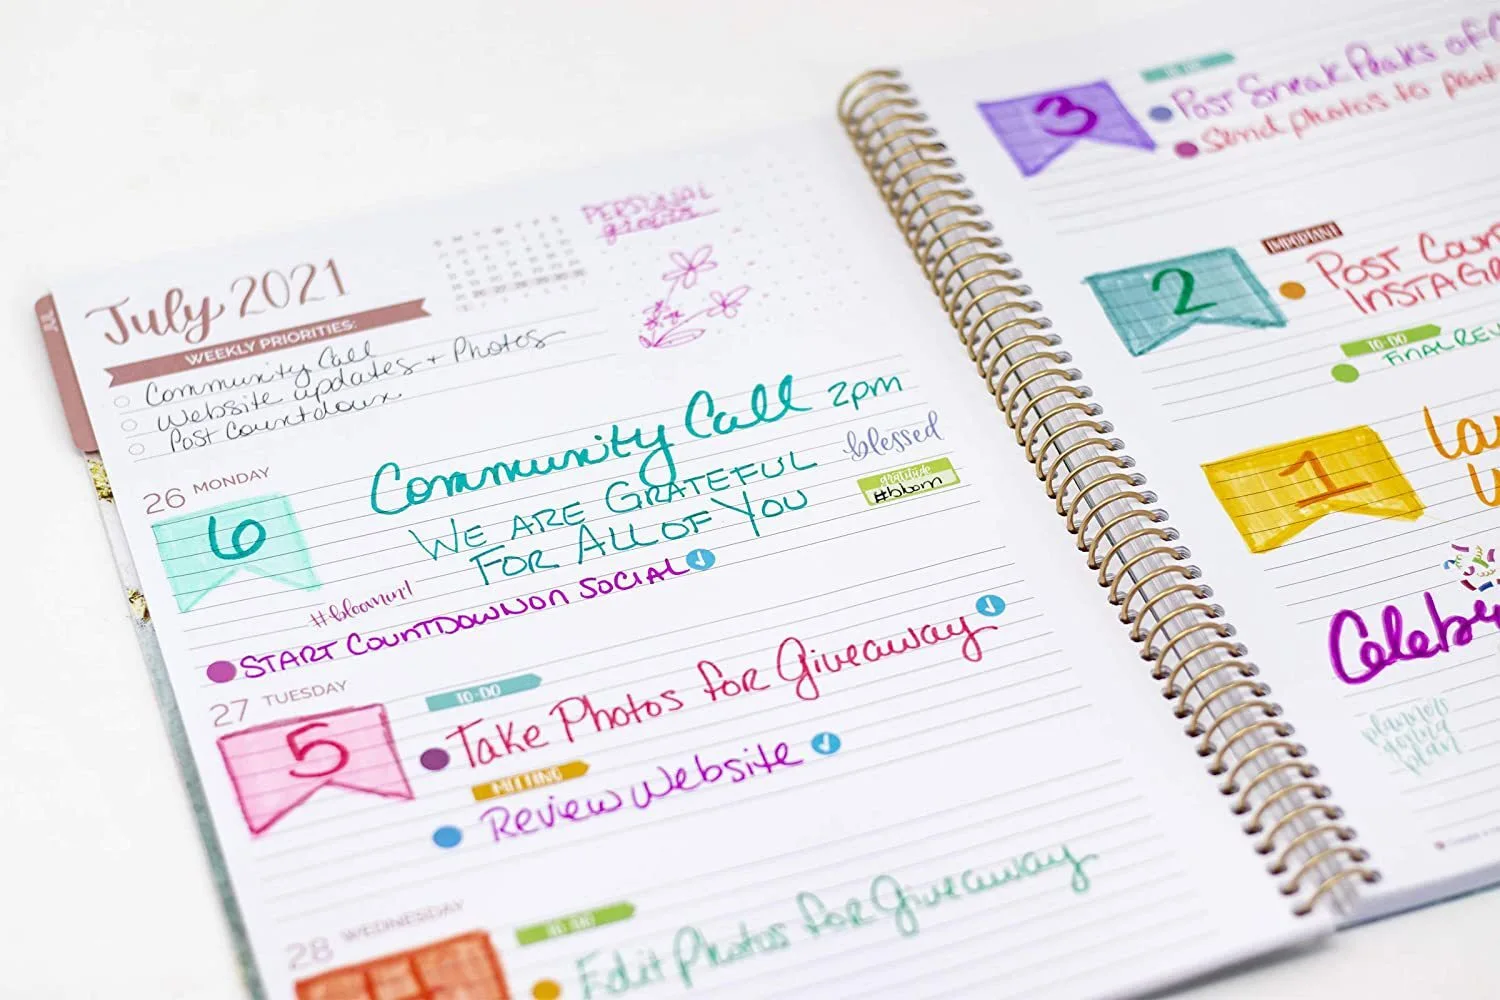 JUL
July 2021
WEEKLY PRIORITIES:
Community Call
Website updates + Photos
Post Countdown
PERSONAL
26 MONDAY
6
Community Call 2pm
WE ARE GRATEFUL
FOR ALL OF YOU
blessed
gratitude
#bloom
#bloomin'
START COUNTDOWN ON SOCIAL
27 TUESDAY
5
TO-DO
Take Photos for Giveaway
MEETING
Review Website
28 WEDNESDAY
4
TO-DO
Edit Photos for Giveaway
3
TO-DO
Post Sneak Peaks of
Send photos to
2
IMPORTANT
POST
INSTAGR
TO-DO
FINAL REV
1
Celebr
planners
gonna
plan